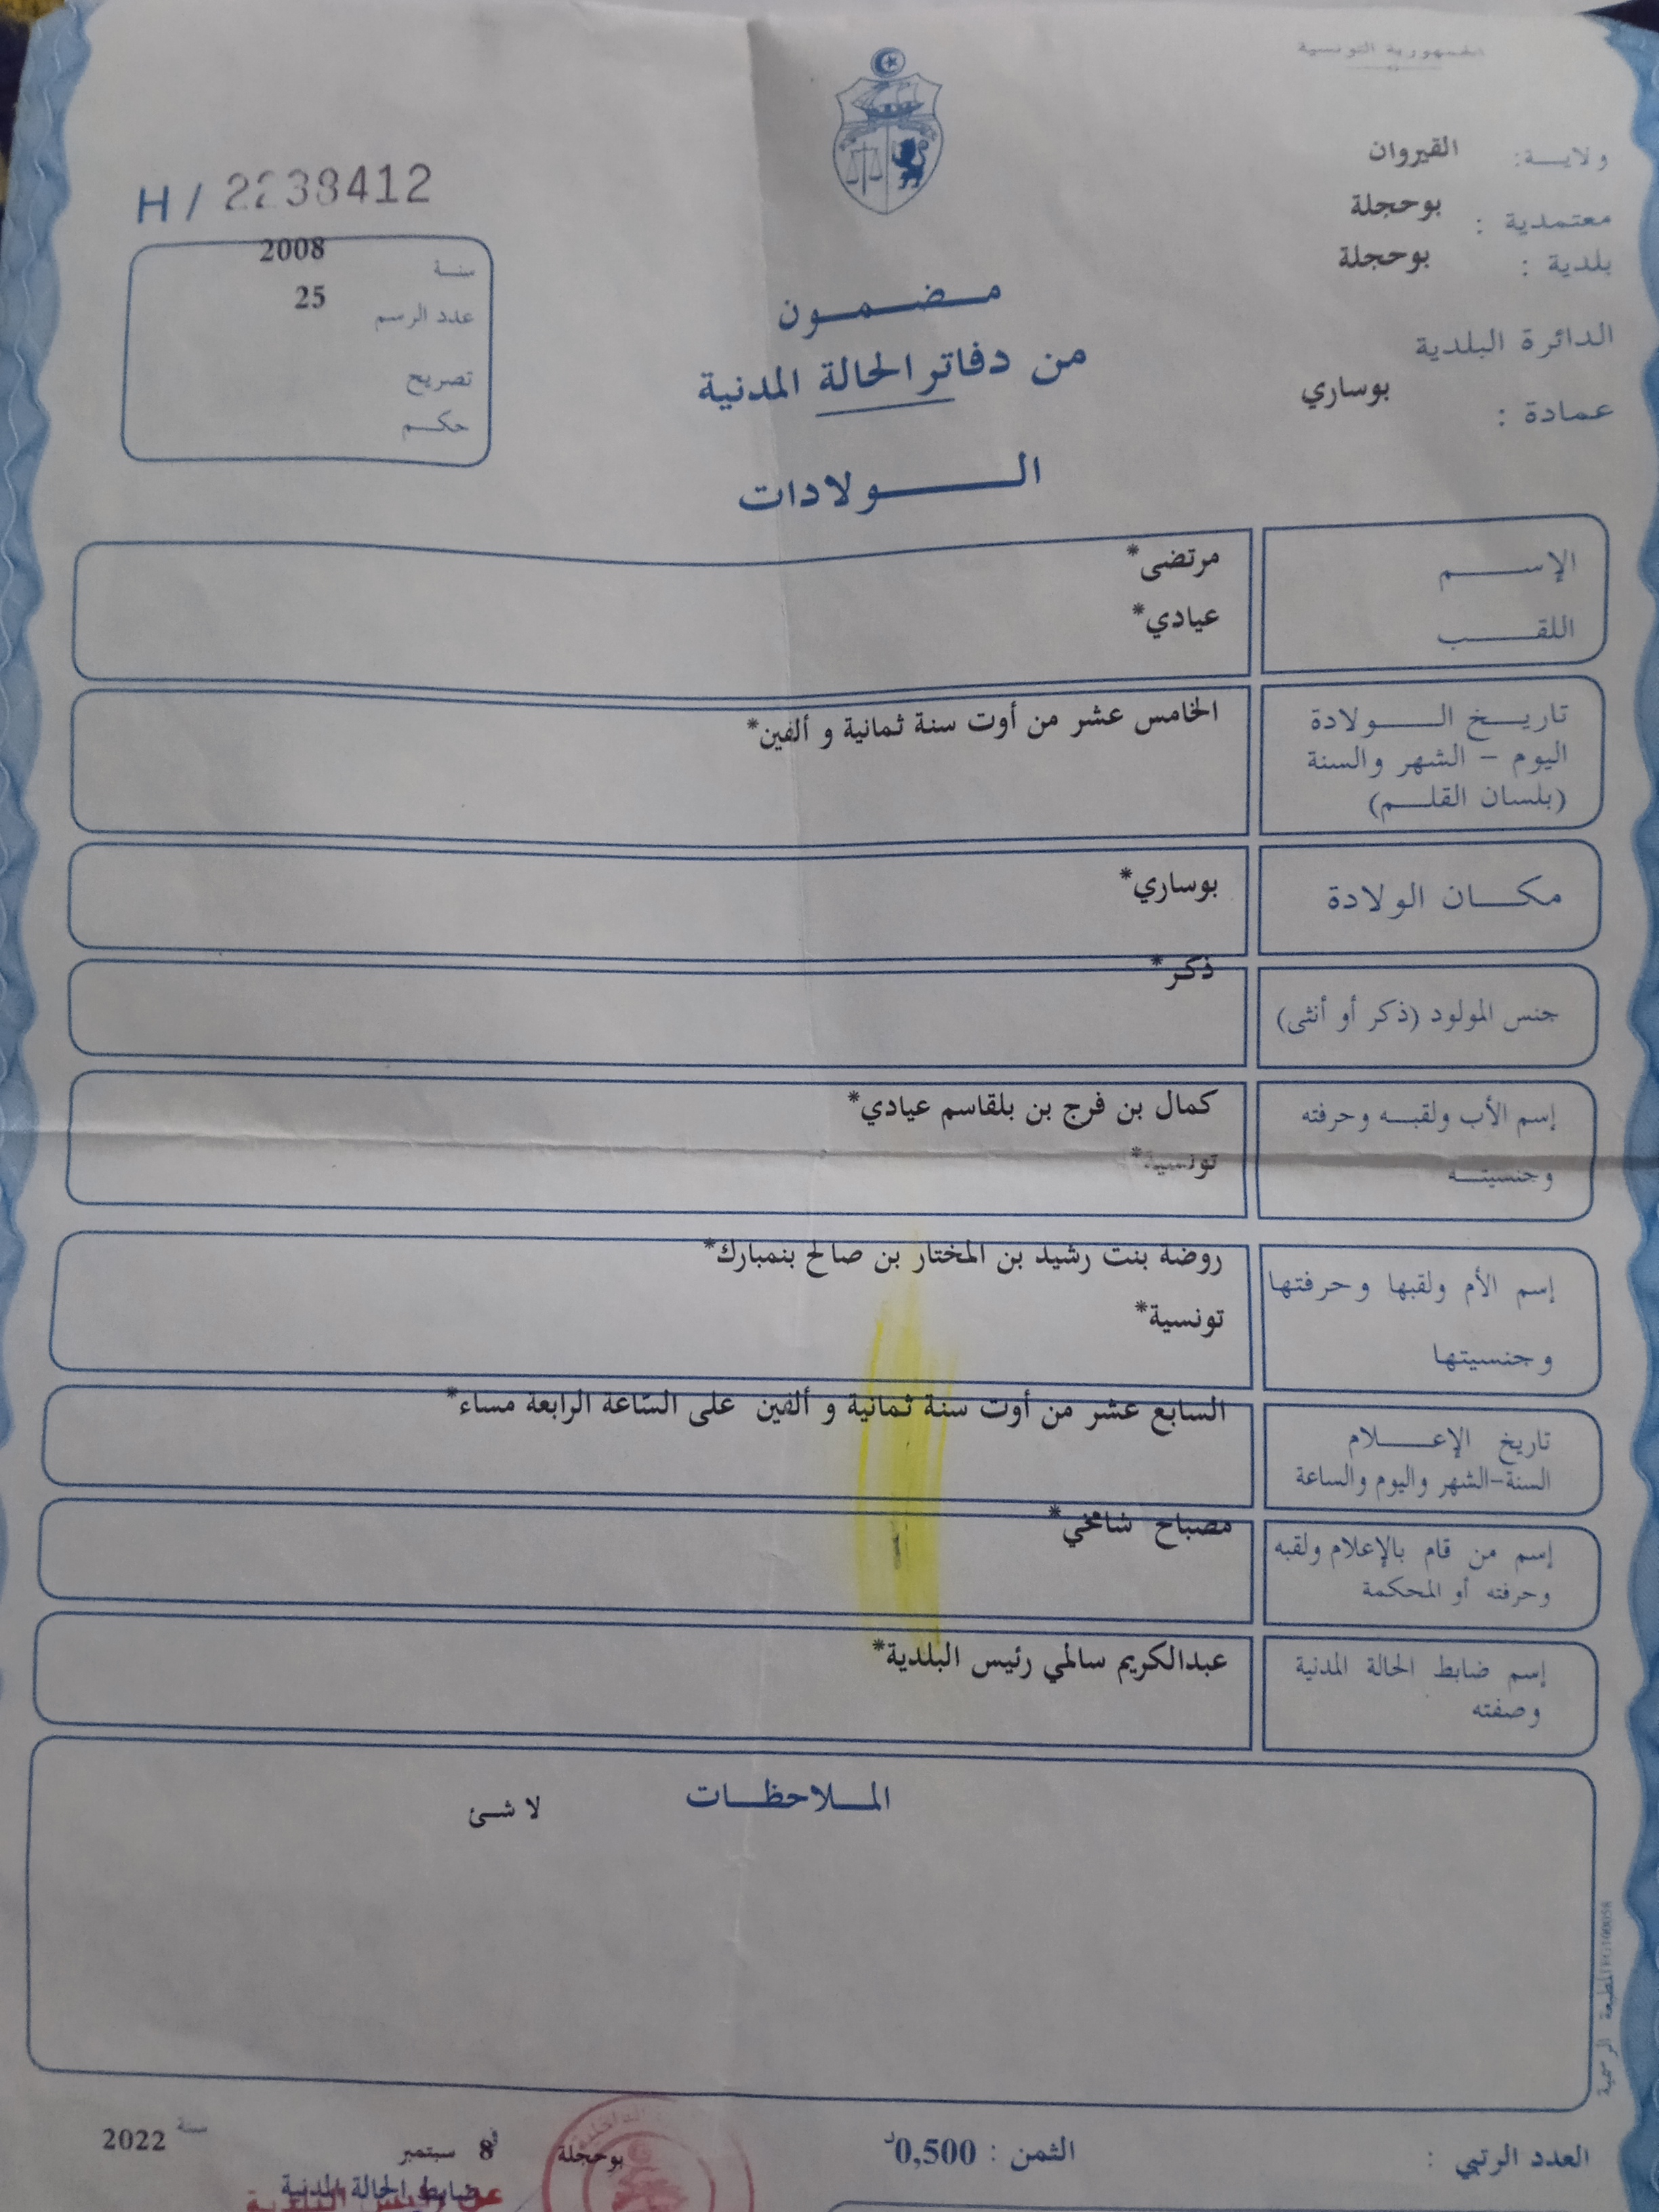 الجمهورية التونسية
ولاية: القيروان
معتمدية : بوحجلة
بلدية : بوحجلة
الدائرة البلدية
عمادة : بوساري
H / 2238412
سنة 2008
عدد الرسم 25
تصريح
حكم
مضمون
من دفاتر الحالة المدنية
الولادات
الإسم مرتضى*
اللقب عيادي*
تاريخ الولادة الخامس عشر من أوت سنة ثمانية و ألفين*
اليوم - الشهر والسنة
(بلسان القلم)
مكان الولادة بوساري*
جنس المولود (ذكر أو أنثى) ذكر*
إسم الأب ولقبه وحرفته كمال بن فرج بن بلقاسم عيادي*
وجنسيته تونسية*
إسم الأم ولقبها وحرفتها روضة بنت رشيد بن المختار بن صالح بنمبارك*
وجنسيتها تونسية*
تاريخ الإعلام السابع عشر من أوت سنة ثمانية و ألفين على السّاعة الرابعة مساء*
السنة-الشهر واليوم والساعة
إسم من قام بالإعلام ولقبه مصباح شامخي*
وحرفته أو المحكمة
إسم ضابط الحالة المدنية عبدالكريم سالمي رئيس البلدية*
وصفته
الملاحظات
لا شئ
المطبعة الرسمية
العدد الرتبي :
الثمن : 0,500د
بوحجلة 8 سبتمبر سنة 2022
ضابط الحالة المدنية